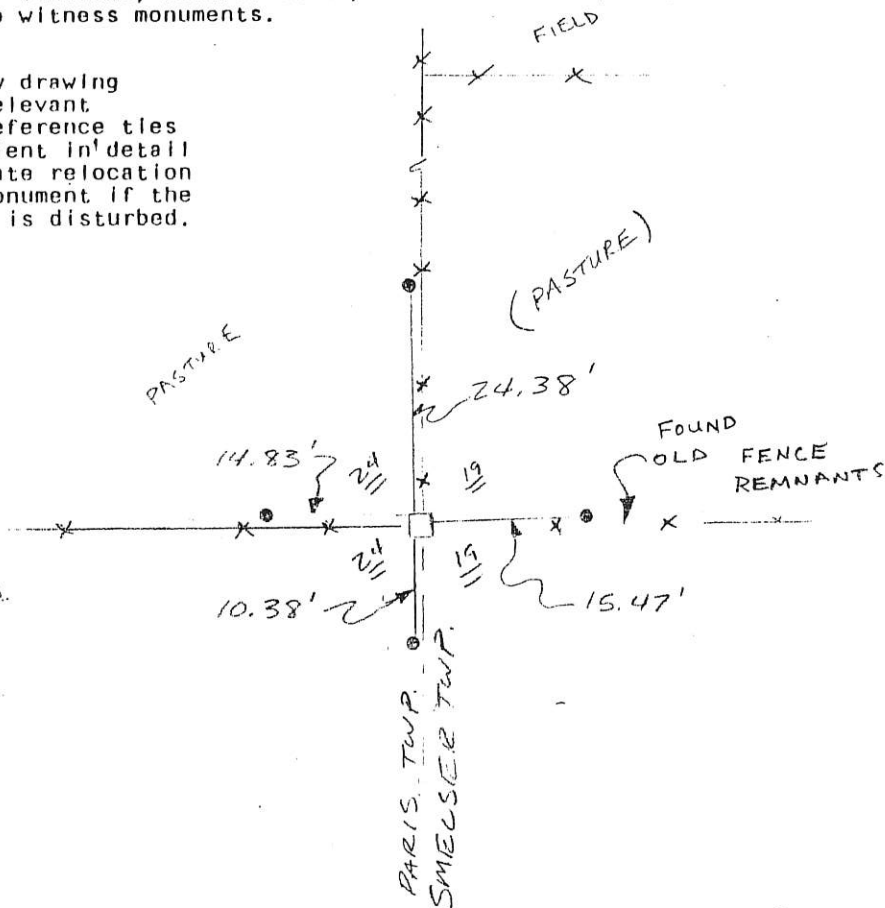 witness monuments.
FIELD
drawing
elevant
eference ties
ent in detail
ate relocation
onument if the
is disturbed.
(PASTURE)
PASTURE
24.38'
FOUND
OLD FENCE
REMNANTS
14.83'
24
19
24
19
10.38'
15.47'
PARIS TWP.
SMELSER TWP.